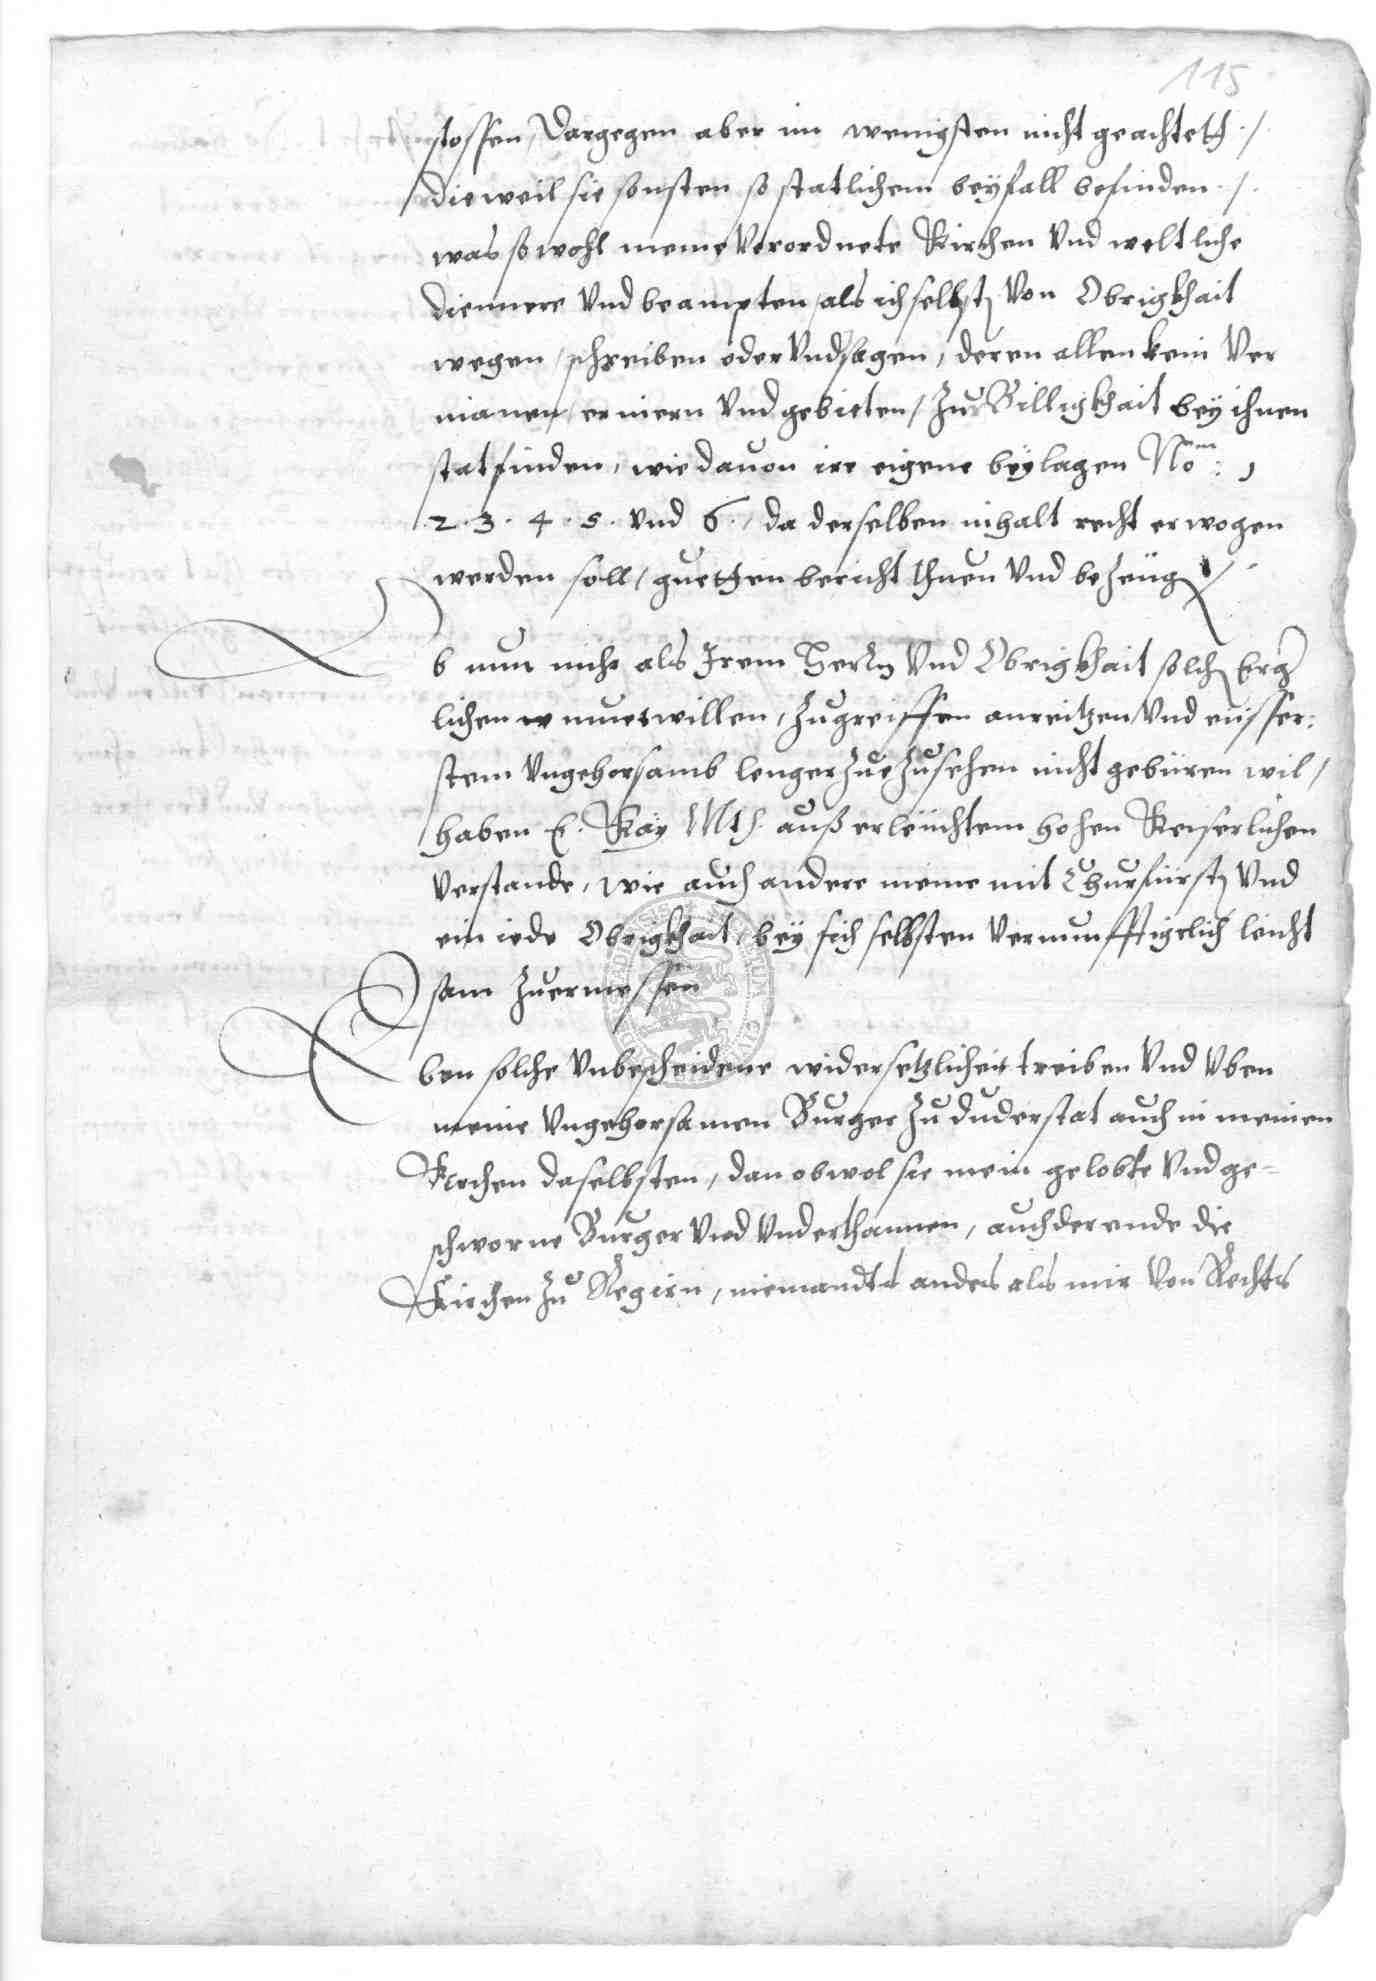 115
stossen, Dargegen aber im wenigsten nicht geachteth ./.
Die weil sie sonsten so statlichem beyfall befinden ./.
was so wohl meine Verordnete Kirchen Vnd weltliche
Diennere Vnd beampten, als ich selbst Von Obrigkhait
wegen, schreiben oder Vnd sagen, deren allen kein Ver
manen, erinern Vnd gebieten, Zur Billigkhait bey ihnen
stat finden, wie dauon ire eigene beylagen No: 1
2 . 3 . 4 . 5 . Vnd 6 . da derselben inhalt recht erwogen
werden soll, guethen bericht thuen Vnd bezeug
Ob nun mihr als Irem Herrn Vnd Obrigkhait solch
lichen muetwillen, Zugreiffen anreitzen Vnd eusser:
stem Vngehorsamb lenger Zue Zusehen nicht gebüren wil,
haben E. Kay Mth. auß erleuchtem hohen Keiserlichen
Verstande, wie auch andere meine mit Churfürst Vnd
ein iede Obrigkhait, bey sich selbsten Vernunfftigelich leicht
sam Zuermessen
Eben solche Vnbescheidene widersetzlicheit treiben Vnd Vben
meine Vngehorsamen Burger Zu Duderstat auch in meinen
Kirchen daselbsten, dan obwol sie mein gelobte Vnd ge=
schworne Burger Vnd Vnderthannen, auch der ende die
Kirchen Zu Regirn, niemandts anders als mir Von Rechts